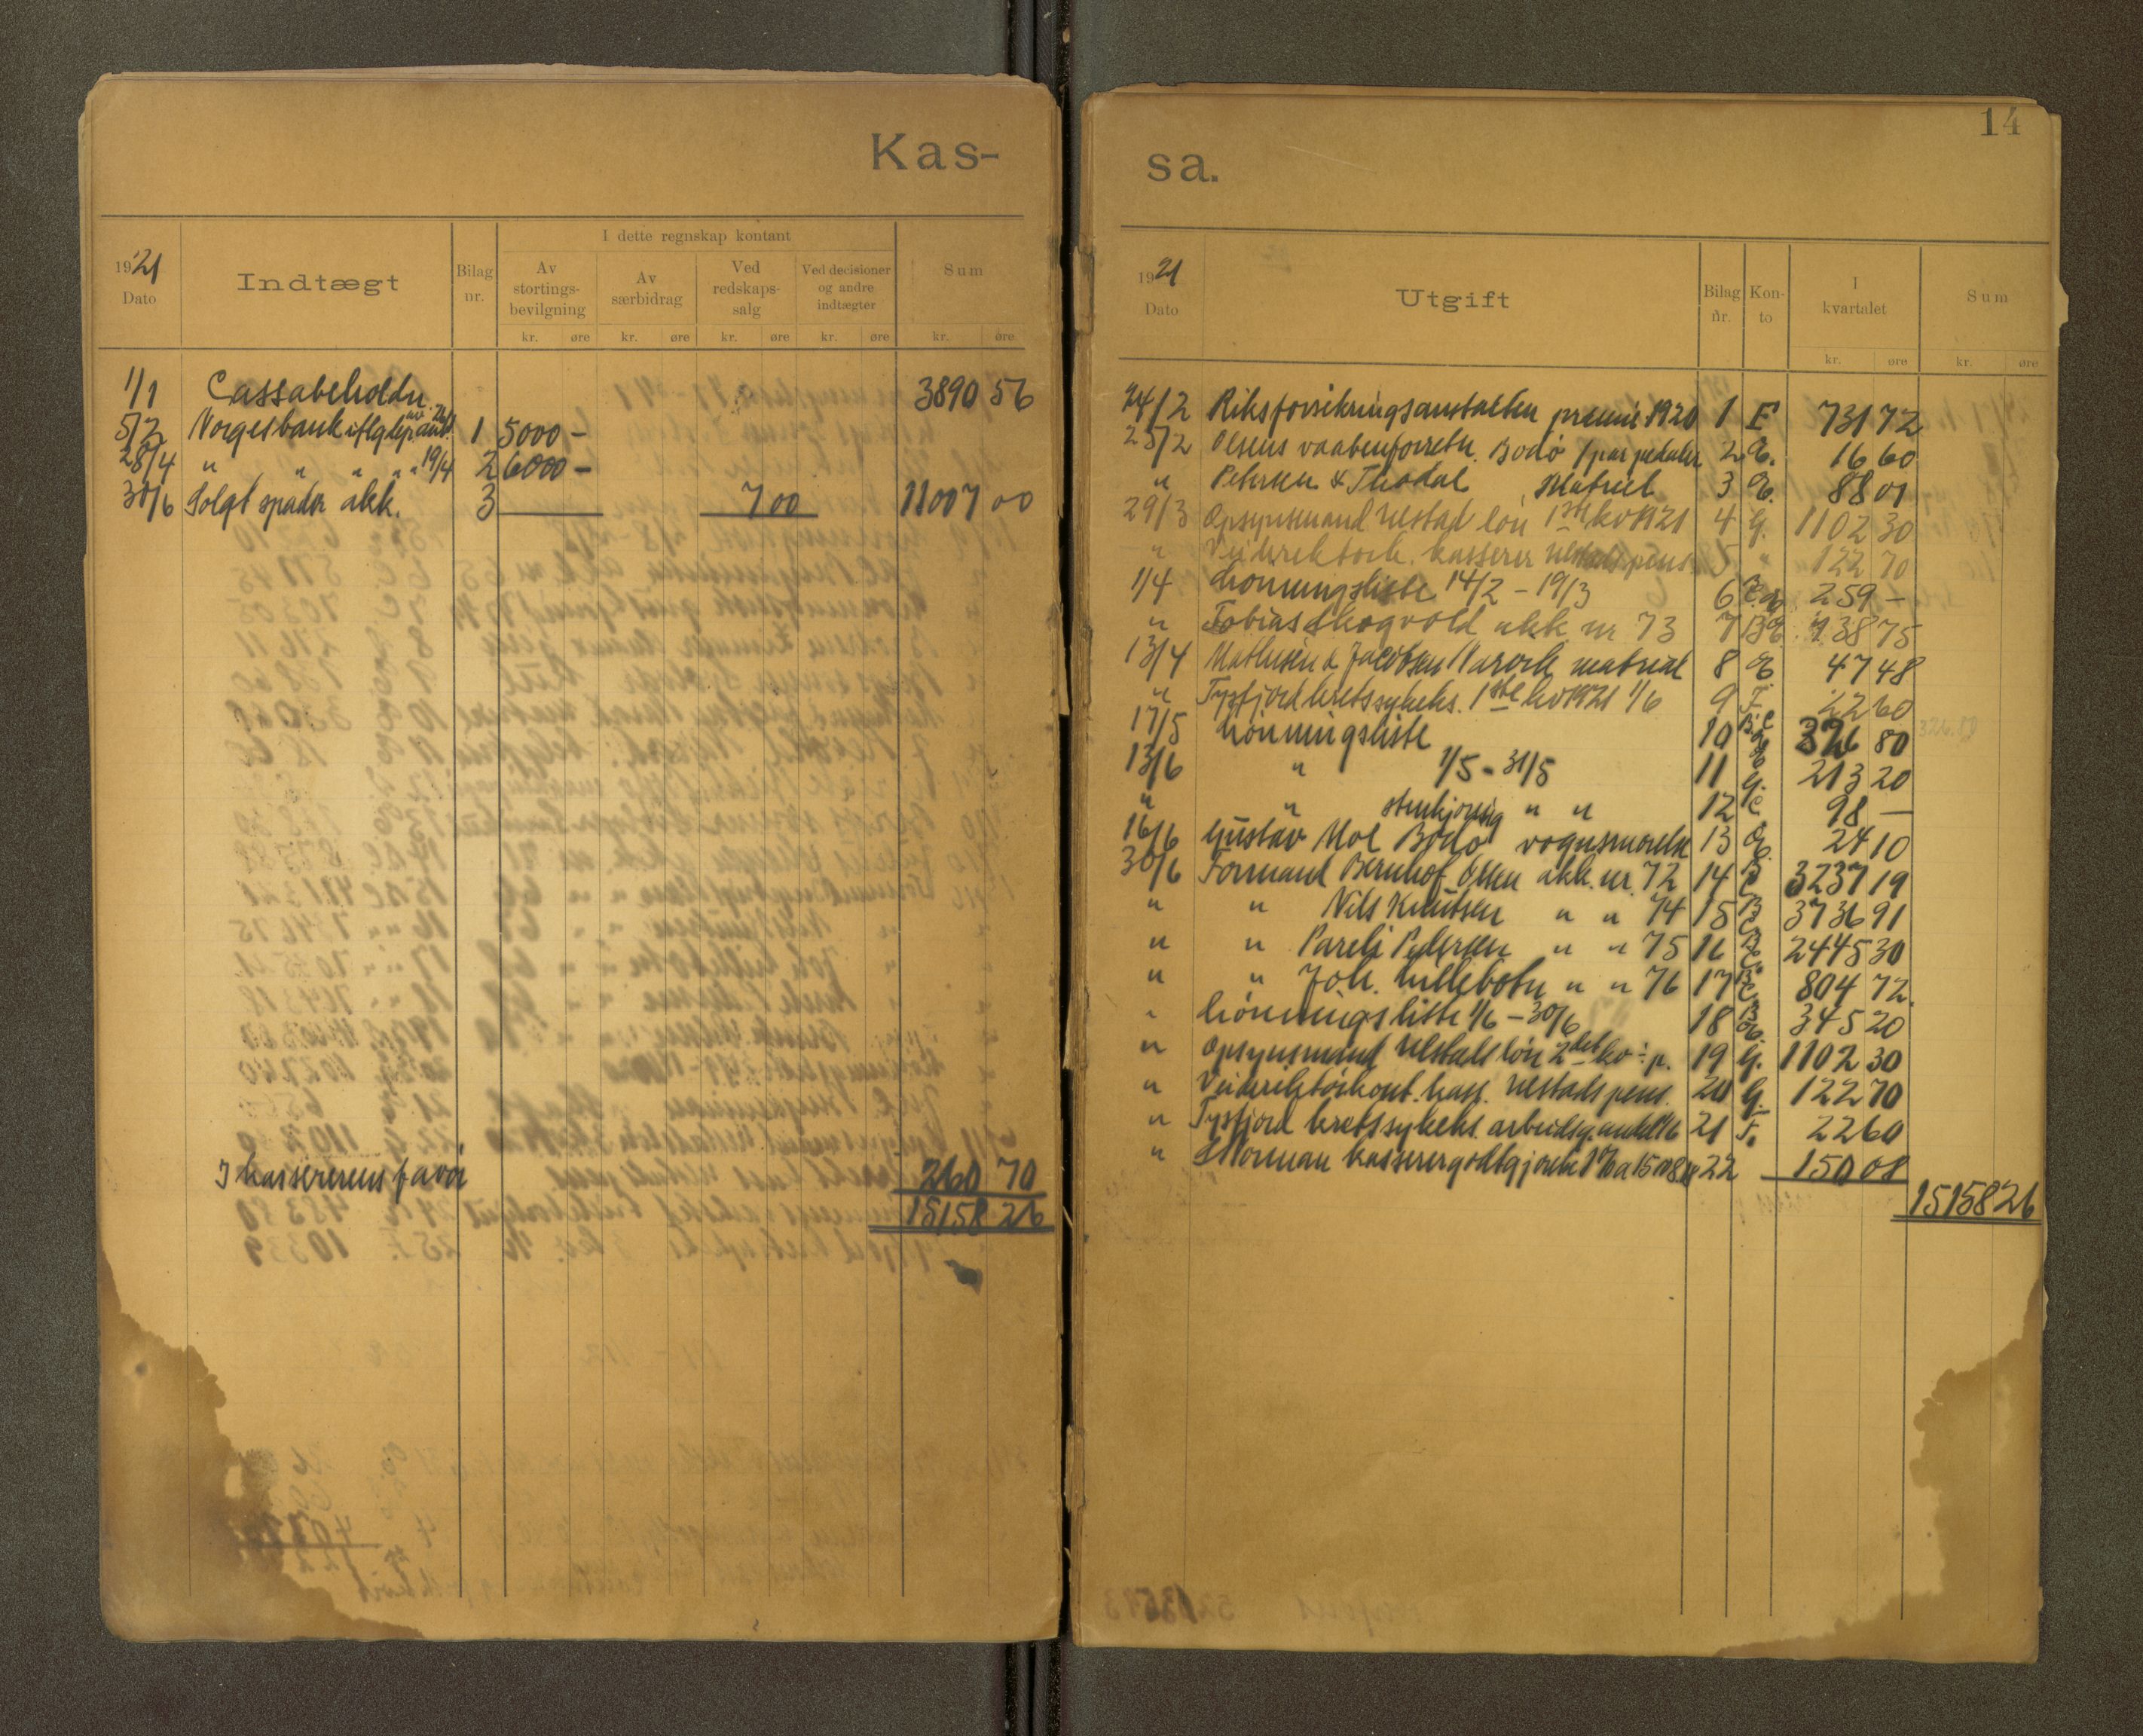 Kas-
I dette regnskap kontant
1921 Dato Indtægt Bilag nr. Av stortings-bevilgning Av særbidrag Ved redskaps-salg Ved decisioner og andre indtægter Sum
kr. øre kr. øre kr. øre kr. øre kr. øre
1/1 Cassabeholdn. 3890 56
5/2 Norges bank 1 5000 -
28/4 " " " " " 19/4 2 6000 -
30/6 Solgt spader akk. 3 7 00 11007 00
I kassererens favør 260 70
15158 26
14
sa.
1921 Dato Utgift Bilag nr. Kon-to I kvartalet Sum
kr. øre kr. øre
24/2 Riksforsikringsanstalten premie 1920 1 F 731 72
25/2 Olsens vaabenforretn. Bodø 1 par pedaler 2 16 60
" Petersen & Thodal, Matriel 3 88 01
29/3 Opsynsmand Ulstad løn 1ste kv 1921 4 G. 1102 30
" Veidirektørk. kasserer Ulstads pens. 5 " 122 70
1/4 Lønningsliste 14/2 - 19/3 6 259 -
" Tobias Skogvold akk nr 73 7 38 75
13/4 Mathisen & Jacobsen Narvik matrial 8 47 48
" Tysfjord kretssykeks. 1ste kv 1921 1/6 9 F. 22 60
17/5 Lønningsliste 10 326 80 326.80
13/6 " 1/5 - 31/5 11 213 20
" " stenkjøring " " 12 98 -
16/6 Gustav Moe Bodø vognsmørelse 13 24 10
30/6 Formand Bernhof Olsen akk. nr. 72 14 B C 3237 19
" " Nils Knutsen " " 74 15 B C 3736 91
" " Pareli Pedersen " " 75 16 B C 2445 30
" " Joh. Lillebotn " " 76 17 B C 804 72.
" Lønningsliste 1/6 - 30/6 18 345 20
" Opsynsmand Ulstads løn 2det kv ÷ p. 19 G. 1102 30
" Veidirektørkont. kass. Ulstads pens. 20 G. 122 70
" Tysfjord kretssykeks. arbeidsg. andel 1/6 21 F. 22 60
" kasserergodtgjørelse 1% a 15008 22 150 08
15158 26